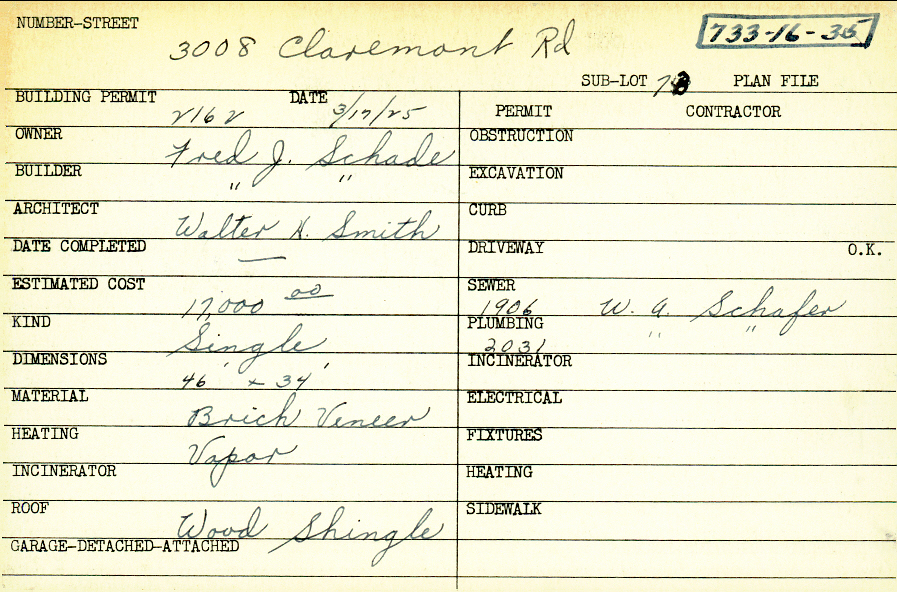 NUMBER-STREET
3008 Claremont Rd
733-16-35
SUB-LOT PLAN FILE
BUILDING PERMIT 2162 DATE 3/17/25
OWNER Fred J. Schade
BUILDER " "
ARCHITECT Walter H. Smith
DATE COMPLETED —
ESTIMATED COST 17,000 00
KIND Single
DIMENSIONS 46' x 34'
MATERIAL Brick Veneer
HEATING Vapor
INCINERATOR
ROOF Wood Shingle
GARAGE-DETACHED-ATTACHED
PERMIT CONTRACTOR
OBSTRUCTION
EXCAVATION
CURB
DRIVEWAY O.K.
SEWER 1906 W. A. Schafer
PLUMBING 2031 " "
INCINERATOR
ELECTRICAL
FIXTURES
HEATING
SIDEWALK